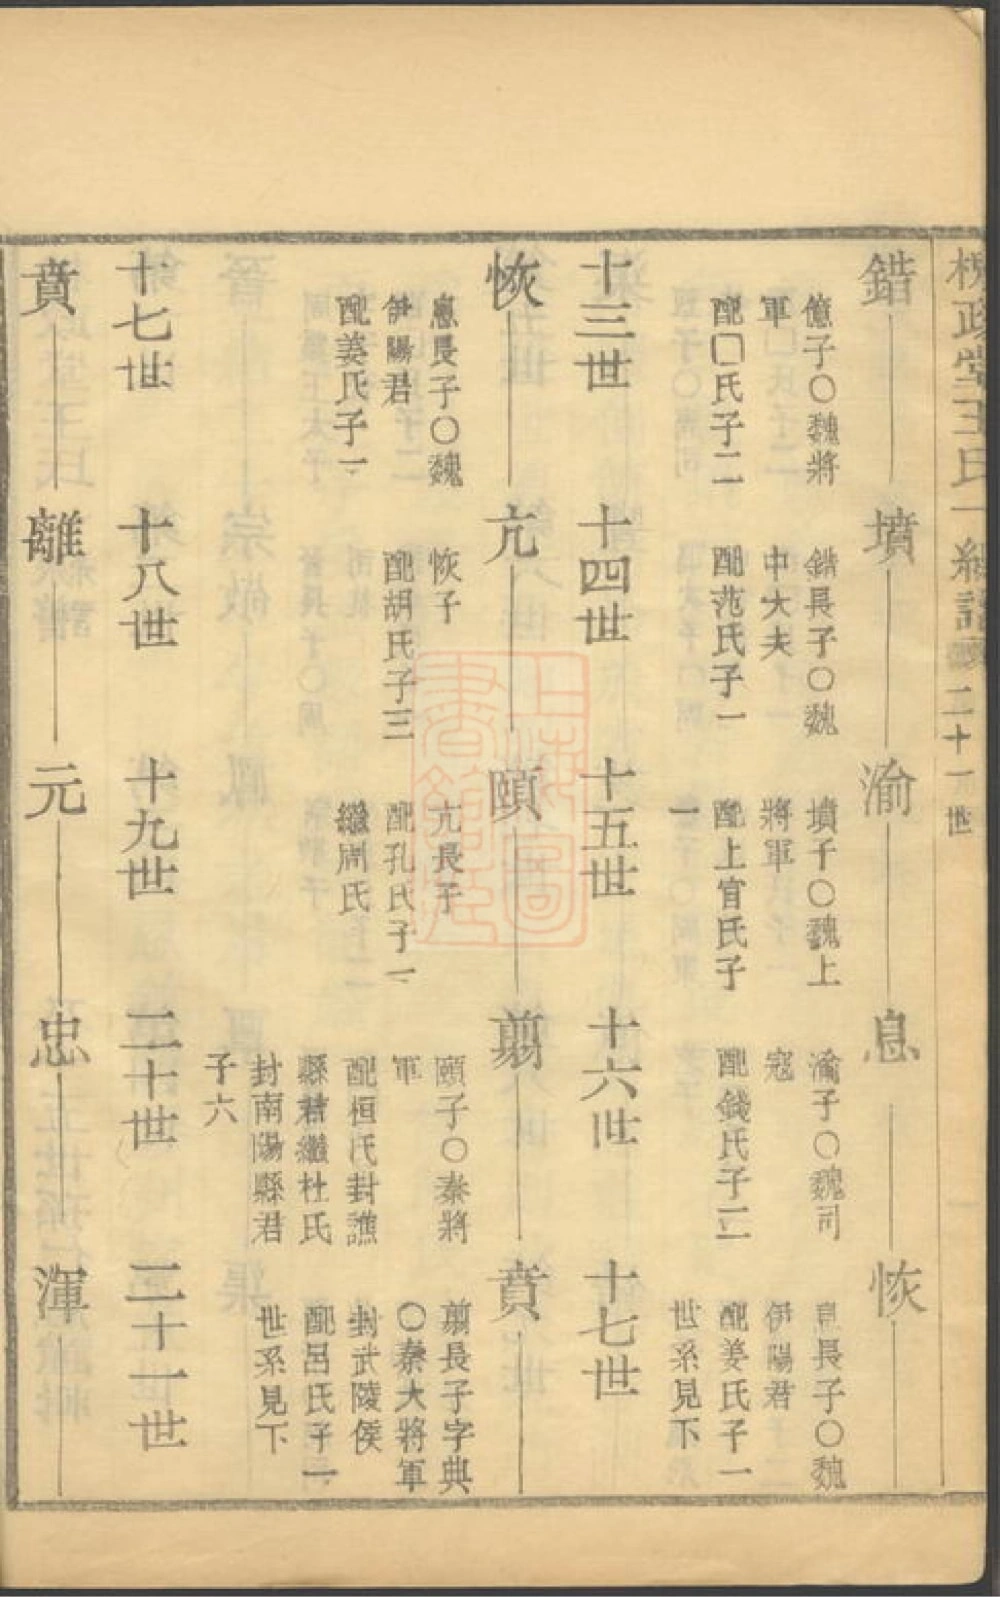 槐政堂王氏一線譜
二十一世
錯
億子〇魏將
軍
配囗氏子二
墳
錯長子〇魏
中大夫
配范氏子一
渝
墳子〇魏上
將軍
配上官氏子
一
息
渝子〇魏司
寇
配錢氏子二
恢
息長子〇魏
伊陽君
配姜氏子一
世系見下
十三世
十四世
十五世
十六世
十七世
恢
息長子〇魏
伊陽君
配姜氏子一
亢
恢子
配胡氏子三
頤
亢長子
配孔氏子一
繼周氏
翦
頤子〇秦將
軍
配桓氏封譙
縣君繼杜氏
封南陽縣君
子六
賁
翦長子字典
〇秦大將軍
封武陵侯
配呂氏子一
世系見下
十七世
十八世
十九世
二十世
二十一世
賁
離
元
忠
渾
上海圖書館藏